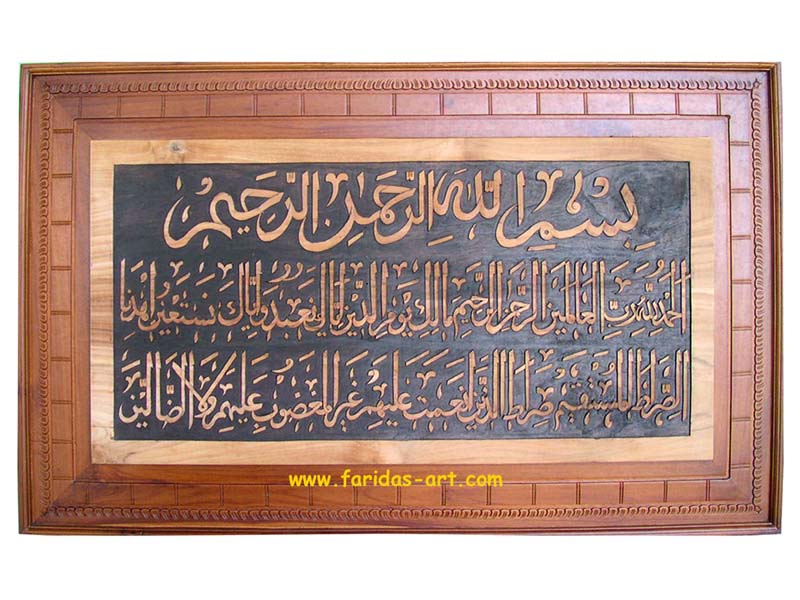 بِسْمِ اللهِ الرَّحْمٰنِ الرَّحِيْمِ
اَلْحَمْدُ لِلّٰهِ رَبِّ الْعَالَمِيْنَ الرَّحْمٰنِ الرَّحِيْمِ مَالِكِ يَوْمِ الدِّيْنِ اِيَّاكَ نَعْبُدُ وَاِيَّاكَ نَسْتَعِيْنُ اِهْدِنَا
الصِّرَاطَ الْمُسْتَقِيْمَ صِرَاطَ الَّذِيْنَ اَنْعَمْتَ عَلَيْهِمْ غَيْرِ الْمَغْضُوْبِ عَلَيْهِمْ وَلَا الضَّالِّيْنَ
www.faridas-art.com